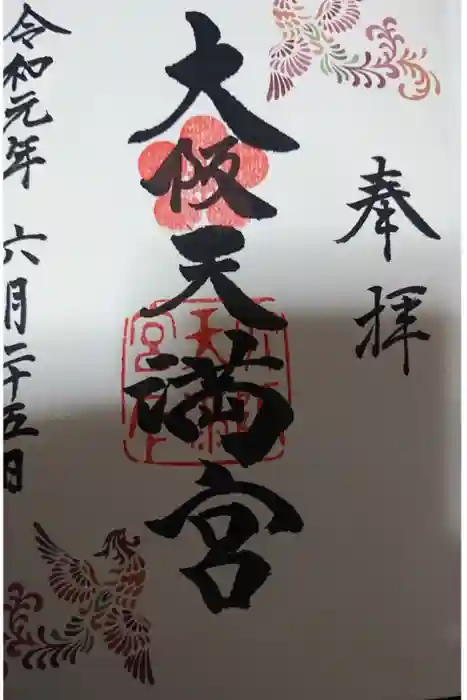 奉拝
大阪天満宮
令和元年 六月二十五日